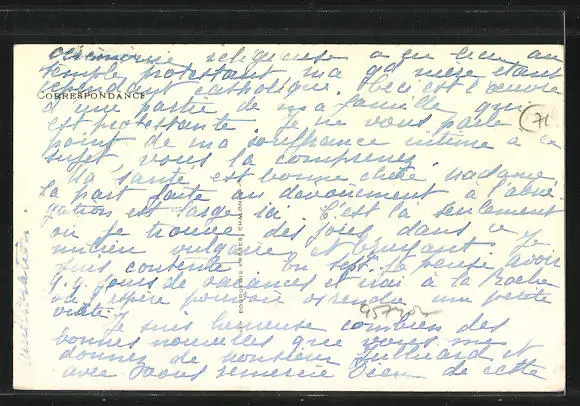 cérémonie religieuse a eu lieu au
temple protestant, ma gd mère étant
cependant catholique. Ceci est l'œuvre
CORRESPONDANCE
d'une partie de ma famille qui
est protestante. Je ne vous parle
71
point de ma souffrance intime à ce
sujet, vous la comprenez.
Ma santé est bonne chère Madame.
La part faite au dévouement à l'abné-
gation est large ici. C'est là seulement
où je trouve des joies dans ce
milieu vulgaire et bruyant. Je
suis contente. En Sept. je pense avoir
q.q. jours de vacances et irai à la Roche
où j'espère pouvoir vs rendre une petite
visite.
Je suis heureuse combien des
bonnes nouvelles que vous me
donnez de Monsieur et
avec vous remercie Dieu de cette
BOURGEOIS FRÈRES, CHALON